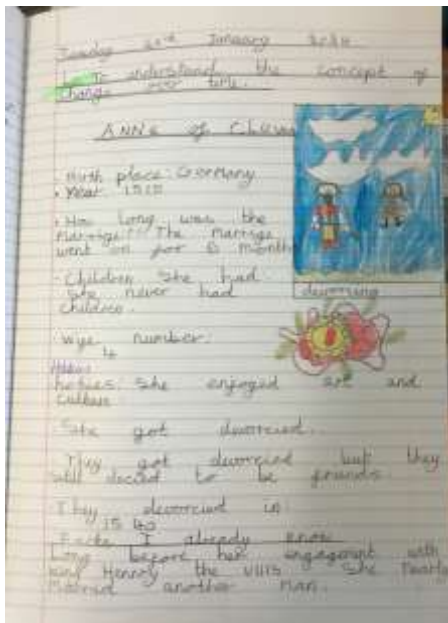 Tuesday January
L To understand the concept of
Change over time.
ANNe of Cleves
• Birth place: Germany
• Year 1515
• How long was the
Marrige?!! The marrige
went on for 6 months
• Children she had.
She never had
children.
devorcing
Wife number:
4
Hobbies
She enjoyed art and
culture
She got devorcied.
They got devorcied but they
still decied to be friends.
They devorcied in:
1540
Facts I already know
Long before her engagement with
King Henrry the VIIIS she
Married another man.